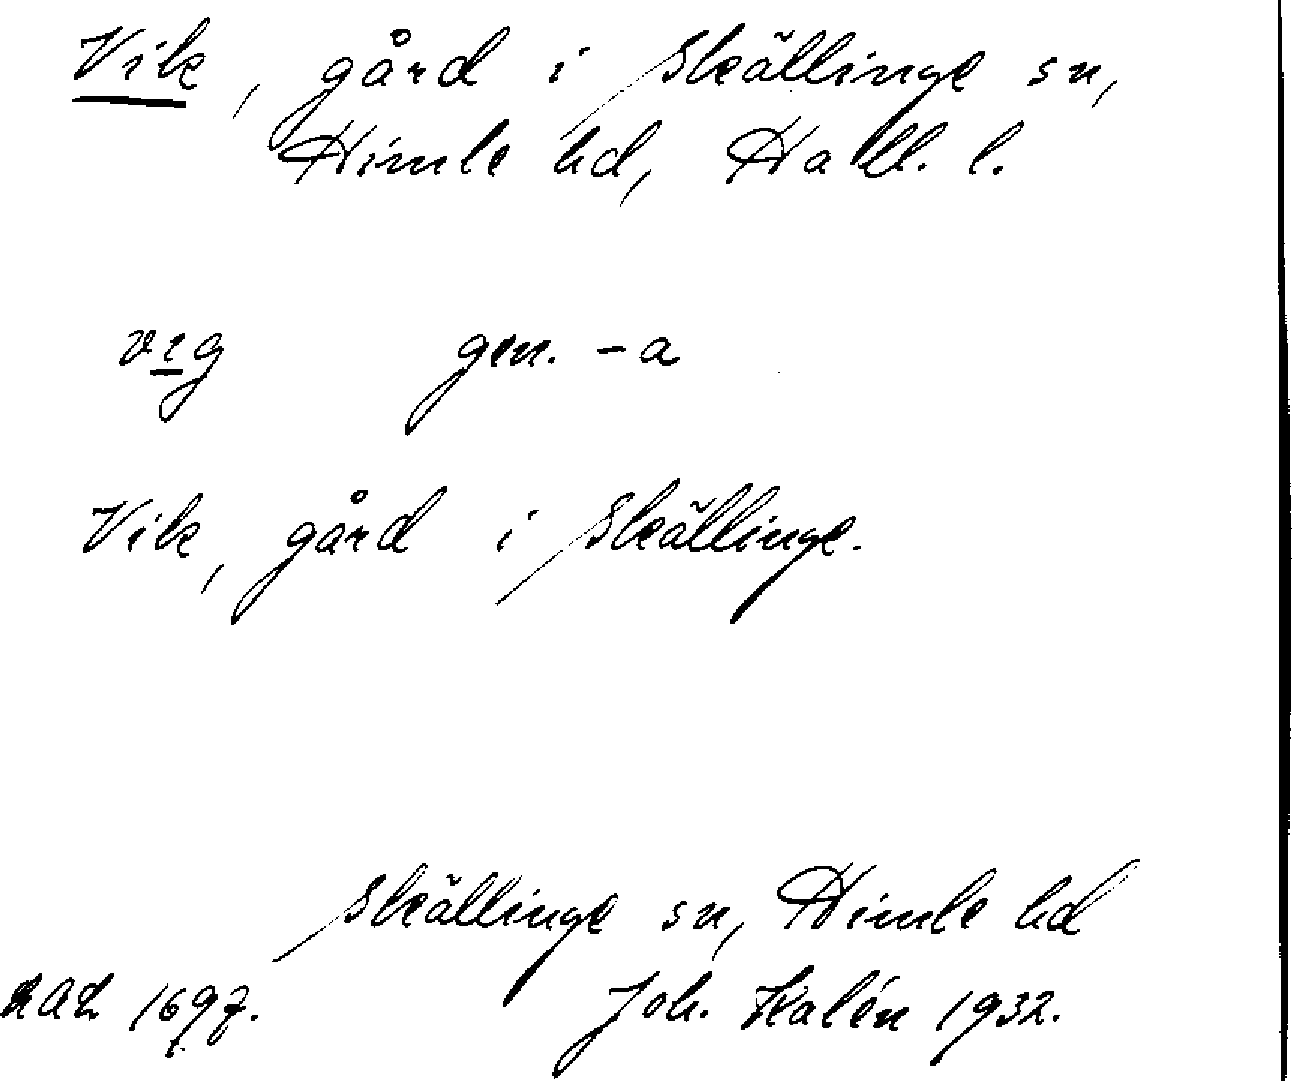 Vik, gård i Skällinge sn,
Himle hd, Hall. l.
vıg gen. -a
Vik, gård i Skällinge.
Skällinge sn, Himle hd
1697. Joh. Kalén 1932.